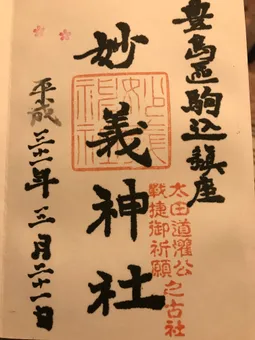 豊島区駒込鎮座
太田道灌公之古社
戦捷御祈願
妙義神社
平成三十一年三月二十一日